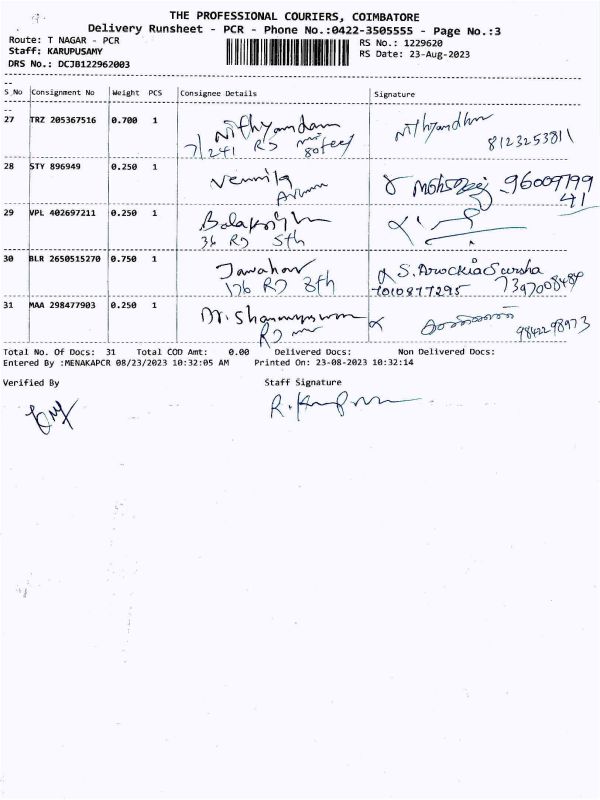 THE PROFESSIONAL COURIERS, COIMBATORE
Delivery Runsheet - PCR - Phone No.:0422-3505555 - Page No.:3
Route: T NAGAR - PCR
RS No.: 1229620
Staff: KARUPUSAMY
RS Date: 23-Aug-2023
DRS No.: DCJB122962003
S_No Consignment No Weight PCS Consignee Details Signature
27 TRZ 205367516 0.700 1 Nithyandam
7/241 RS 80feet
8123253811
28 STY 896949 0.250 1 Vennila 96009799
41
29 VPL 402697211 0.250 1
36 RS 5th
30 BLR 2650515270 0.750 1 Jawahar S. Arockia Sursha
176 RS 8th 7010877295 7397008484
31 MAA 298477903 0.250 1
RS 9842298973
Total No. Of Docs: 31 Total COD Amt: 0.00 Delivered Docs: Non Delivered Docs:
Entered By :MENAKAPCR 08/23/2023 10:32:05 AM Printed On: 23-08-2023 10:32:14
Verified By Staff Signature